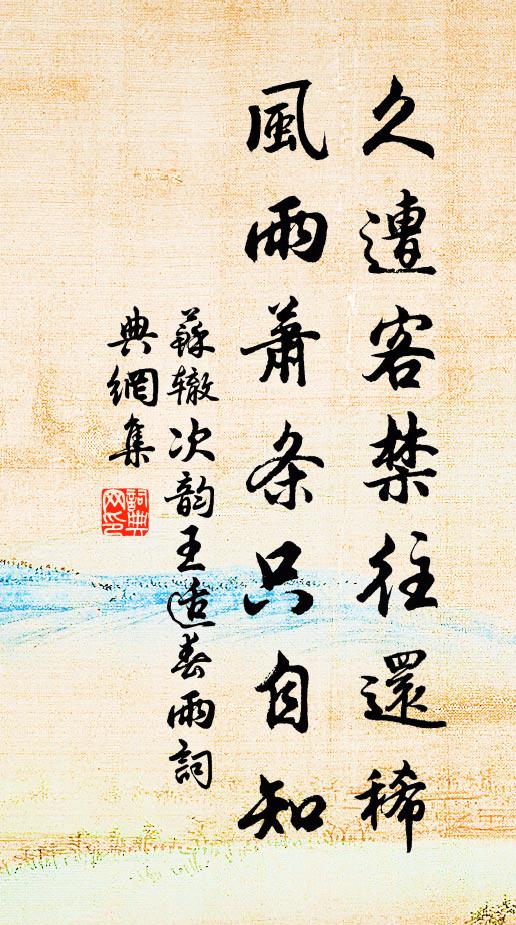 久遭客禁往還稀
風雨蕭条只自知
蘇辙次韵王适春雨詞
典網集
詞典
网印